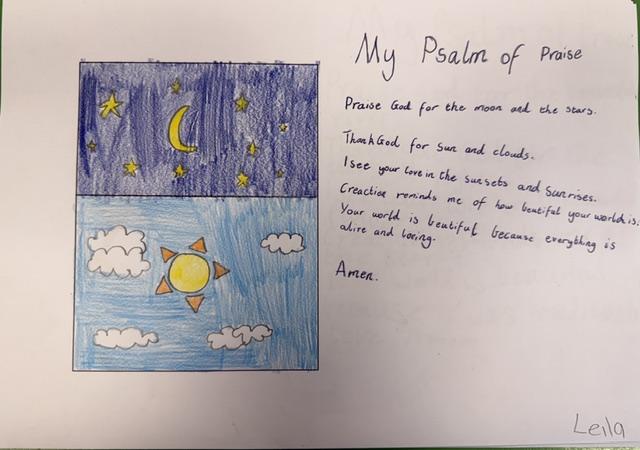 My Psalm of Praise
Praise God for the moon and the stars.
Thank God for sun and clouds.
I see your love in the sunsets and sunrises.
Creaction reminds me of how beutiful your world is.
Your world is beutiful because everything is
alire and loring.
Amen.
Leila